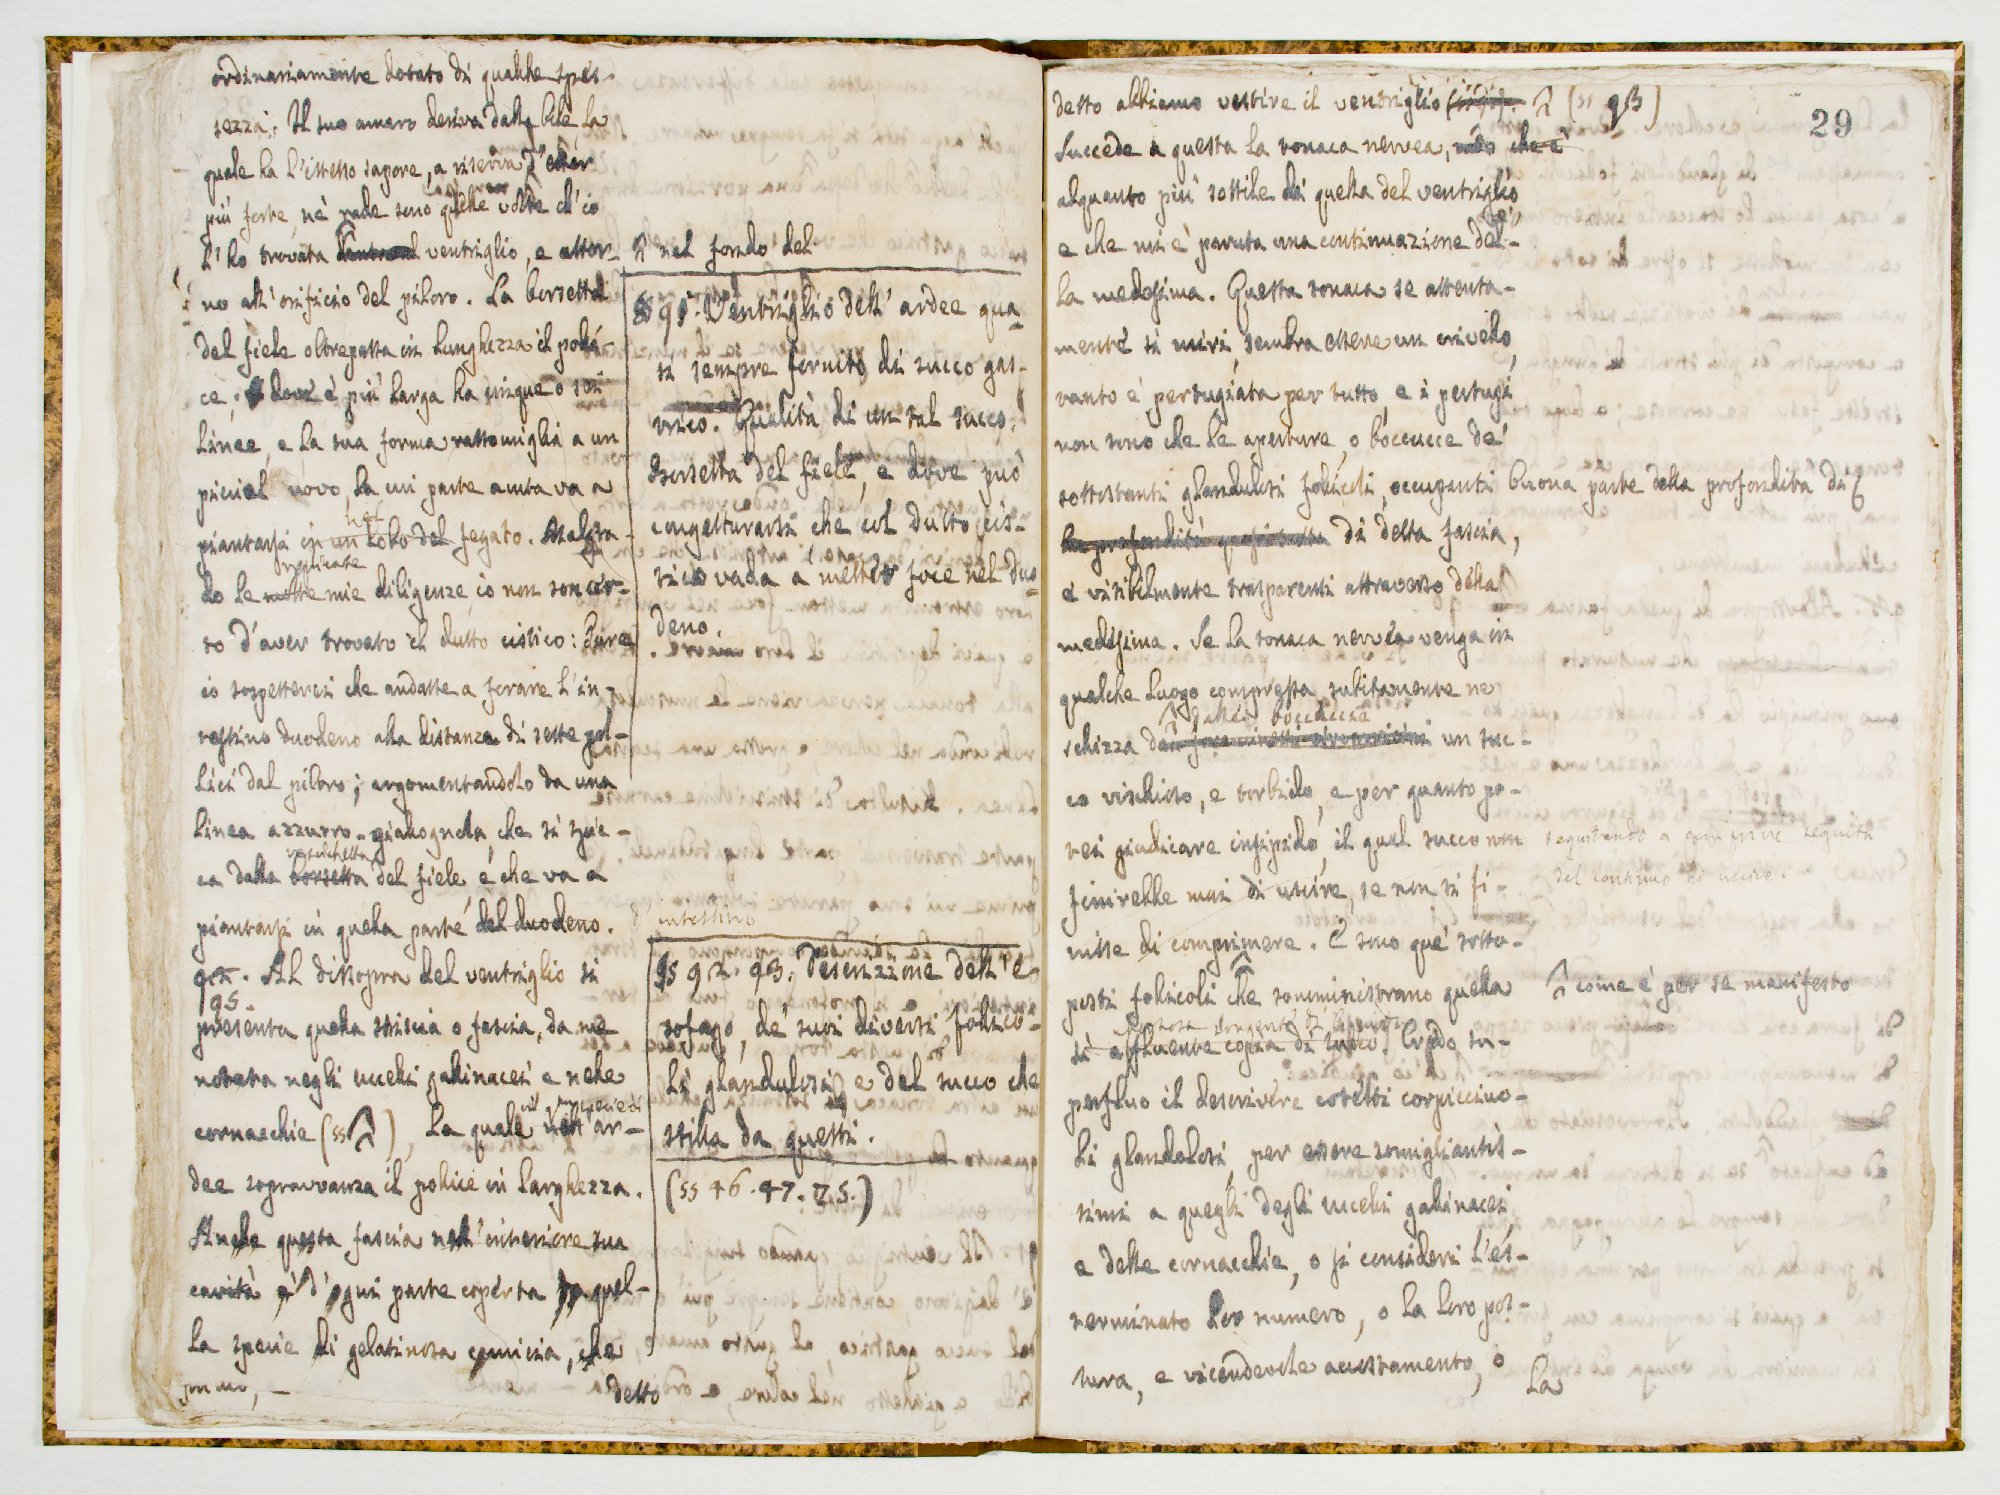 ordinariamente dotato di qualche spes-
sezza. Il suo amaro deriva dalla bile, la
quale ha l'istesso sapore, a riserva d'esser
più forte, nè rade sono quelle volte ch'io
l'ho trovata ventriglio, e attor-
no all'orificio del piloro. La borsetta
del fiele oltrepassa in lunghezza il polli-
ce, dove è più larga ha cinque o sei
linee, e la sua forma rassomiglia a un
picciol uovo, la cui parte acuta va a
piantarsi in un lobo del fegato. Malgra-
nel
do le molte mie diligenze io non son cer-
replicate
to d'aver trovato il dutto cistico: Pure
io sospetterei che andasse a forare l'in-
testino duodeno alla distanza di sette pol-
lici dal piloro; argomentandolo da una
linea azzurro-giallognola, che si spic-
ca dalla borsetta del fiele, e che va a
vescichetta
piantarsi in quella parte del duodeno.
92. Al dissopra del ventriglio si
presenta quella striscia o fascia, da me
notata negli uccelli gallinacei e nelle
cornacchie (§§), la quale nell'ar-
dee sopravvanza il pollice in larghezza.
Anche questa fascia nell'interiore sua
cavità è d'ogni parte coperta da quel-
la specie di gelatinosa camicia, che
detto
nel fondo del
§ 91. Ventriglio dell'ardee qua-
si sempre fornito di succo gas-
trico. Qualità di un tal succo.
Borsetta del fiele, e dove può
congetturarsi che col dutto cis-
tico vada a metter foce nel duo-
deno.
intestino
§§ 92. 93. Descrizione dell'e-
sofago, de' suoi diversi follico-
li glandulosi e del succo che
stilla da questi.
(§§ 46. 47. 75.)
29
detto abbiamo vestire il ventriglio (§§ 93)
Succede a questa la tonaca nervea, che è
alquanto più sottile di quella del ventriglio,
e che mi è paruta una continuazione del-
la medesima. Questa tonaca se attenta-
mente si miri, sembra essere un crivello,
tanto è pertugiata per tutto, e i pertugi
non sono che le aperture, o boccucce de'
sottostanti glandulosi follicoli, occupanti buona parte della profondità di
la profondità di detta fascia,
e visibilmente trasparenti attraverso della
medesima. Se la tonaca nervea venga in
qualche luogo compressa, subitamente ne
dalle boccucce
schizza un suc-
co vischioso, e torbido, e per quanto po-
tei giudicare insipido, il qual succo non
seguitando a comprime seguita
finirebbe mai di uscire, se non si fi-
del continuo ad uscire.
nisse di comprimere. E sono que' sotto-
posti follicoli che somministrano quella
come è per se manifesto
sì affluente copia di succo. Credo su-
perfluo il descrivere cotesti corpicciuo-
li glandolosi, per essere somigliantis-
simi a quegli degli uccelli gallinacei,
e delle cornacchie, o si consideri l'es-
terminato lor numero, o la loro pos-
tura, e vicendevole accostamento, o
La